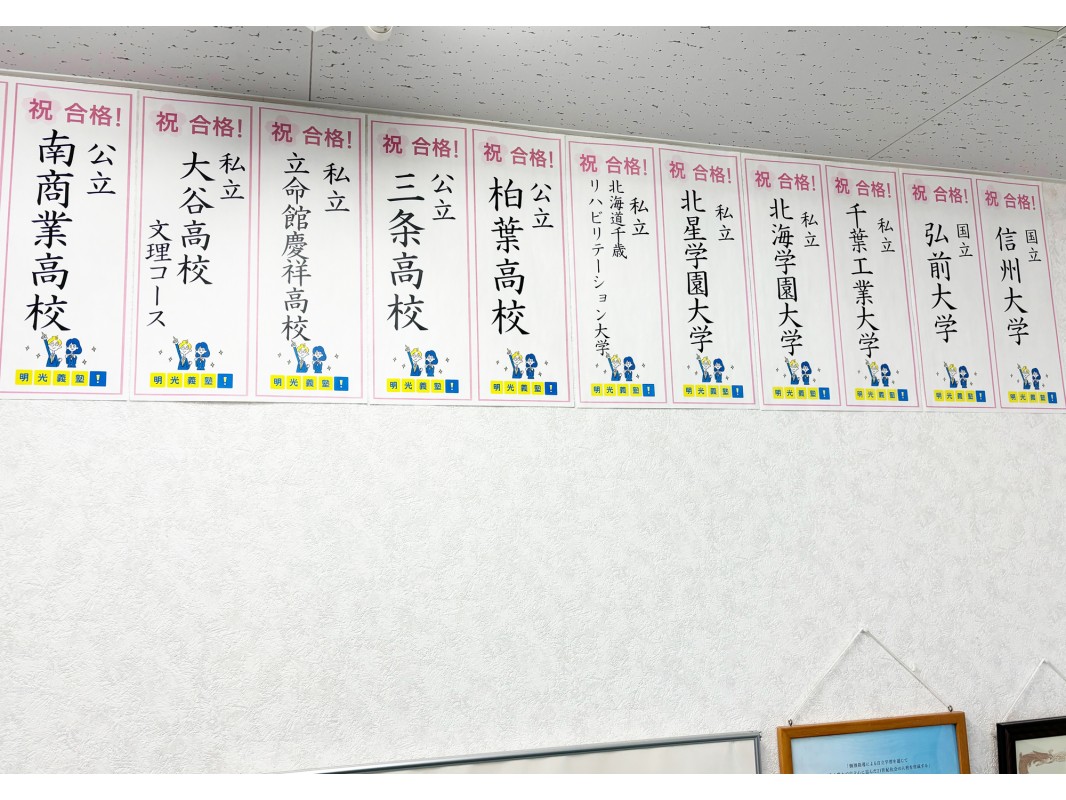 祝 合格!
公立
南商業高校
明光義塾!
祝 合格!
私立
大谷高校
文理コース
明光義塾!
祝 合格!
私立
立命館慶祥高校
明光義塾!
祝 合格!
公立
三条高校
明光義塾!
祝 合格!
公立
柏葉高校
明光義塾!
祝 合格!
私立
北海道千歳
リハビリテーション大学
明光義塾!
祝 合格!
私立
北星学園大学
明光義塾!
祝 合格!
私立
北海学園大学
明光義塾!
祝 合格!
私立
千葉工業大学
明光義塾!
祝 合格!
国立
弘前大学
明光義塾!
祝 合格!
国立
信州大学
明光義塾!